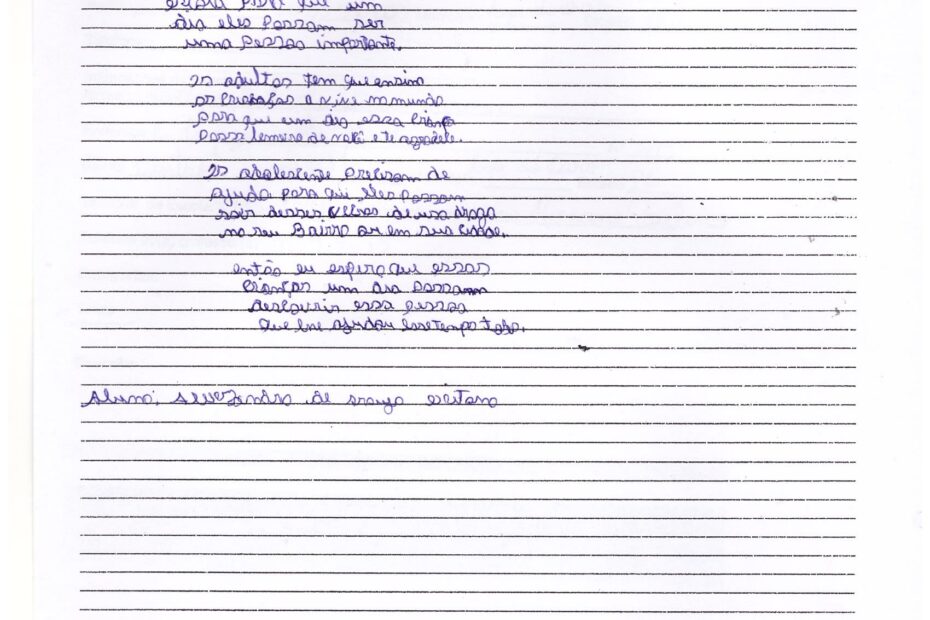 para que um
dia eles possam ser
uma pessoa importante.
os adultos tem que ensino
as crianças a vive no mundo
para que um dia essa criança
possa lembra de você e te agradece.
os adolescente precisam de
ajuda para que eles possam
sair desses de usa droga
no seu Bairro ou em sua cidade.
então eu espero que essas
crianças um dia possam
descobrir essa pessoa
que lhe ajudou esse tempo todo.
Aluno: de araujo